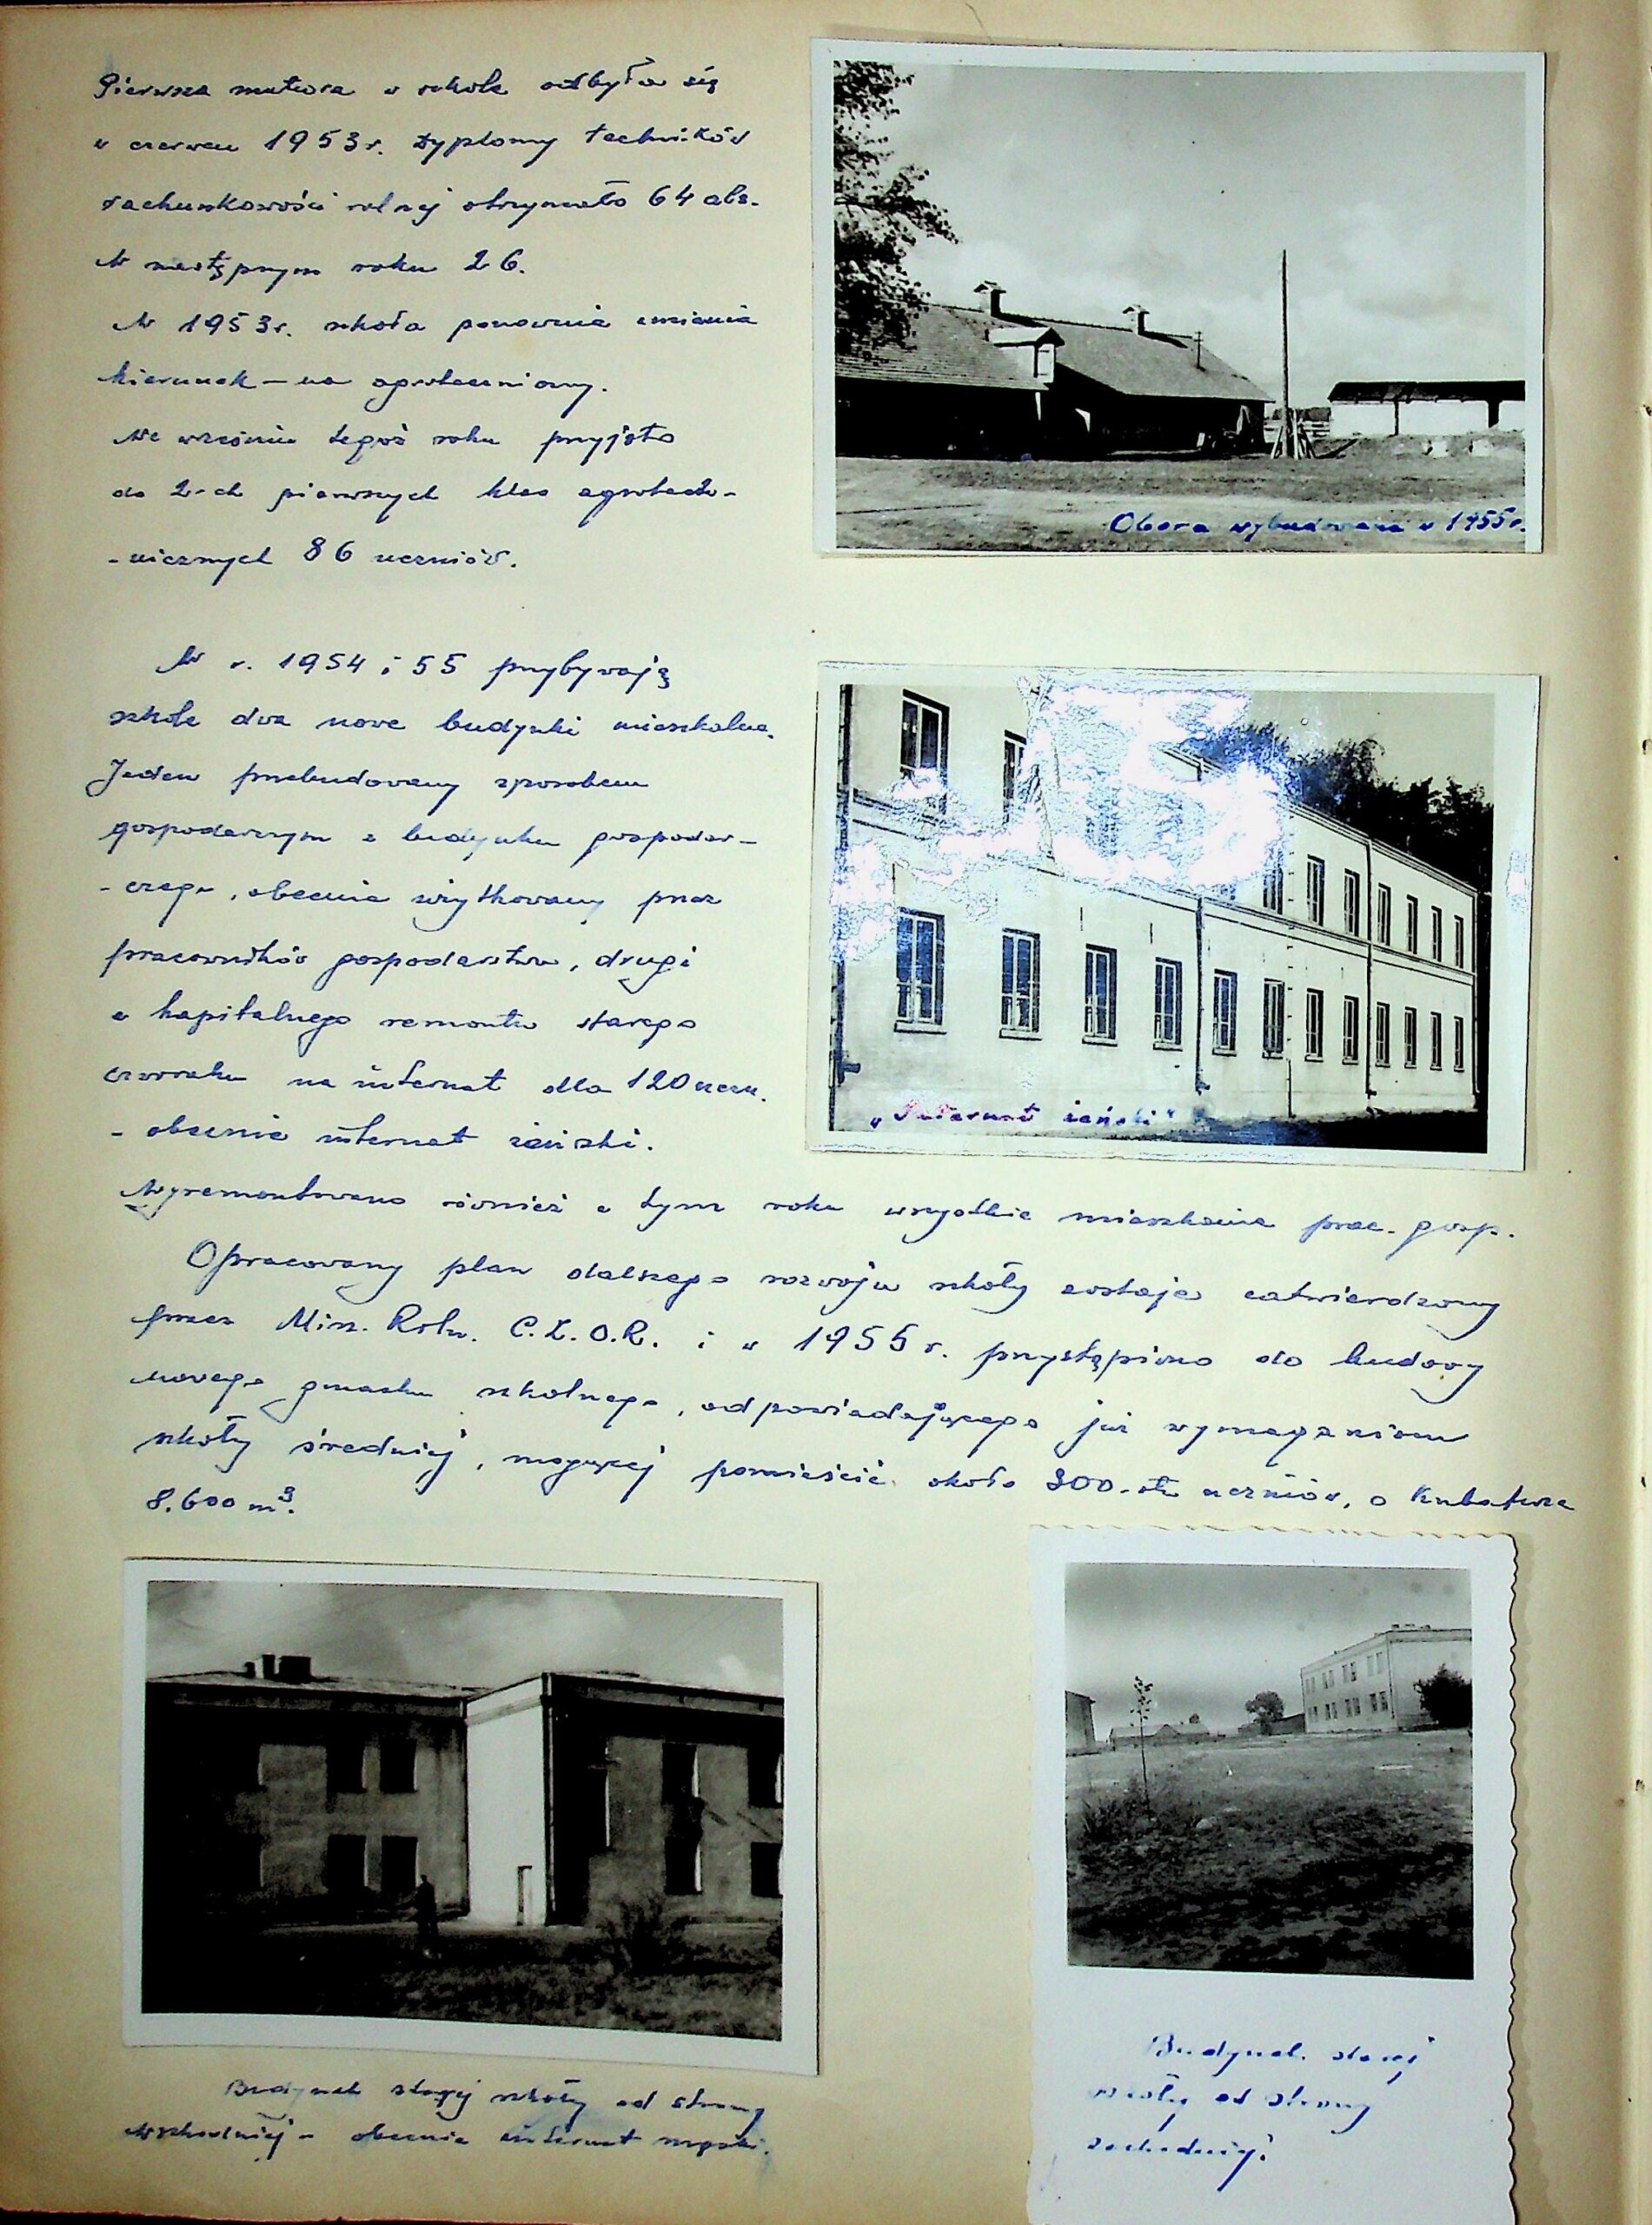 Pierwsza matura w szkole odbyła się
w czerwcu 1953 r. dyplomy techników
rachunkowości rolnej otrzymało 64 abs.
W następnym roku 26.
W 1953 r. szkoła ponownie zmienia
kierunek – na agrotechniczny.
We wrześniu tegoż roku przyjęto
do 2-ch pierwszych klas agrotech-
-nicznych 86 uczniów.
Obora wybudowana w 1955 r.
W r. 1954 i 55 przybywają
szkole dwa nowe budynki mieszkalne.
Jeden przebudowany sposobem
gospodarczym z budynku gospodar-
-czego, obecnie użytkowany przez
pracowników gospodarstwa, drugi
z kapitalnego remontu starego
czworaku na internat dla 120 uczn.
- obecnie internat żeński.
„Internat żeński"
Wyremontowano również w tym roku wszystkie mieszkania prac. gosp.
Opracowany plan dalszego rozwoju szkoły zostaje zatwierdzony
przez Min. Roln. C.Z.O.R. i w 1955 r. przystąpiono do budowy
nowego gmachu szkolnego, odpowiadającego już wymaganiom
szkoły średniej, mogącej pomieścić około 300-stu uczniów, o kubaturze
8.600 m³.
Budynek starej szkoły od strony
wschodniej – obecnie internat męski.
Budynek starej
szkoły od strony
zachodniej.